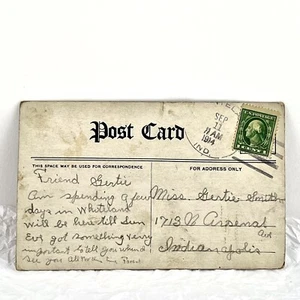 SEP
11
11 AM
1914
IND.
Post Card
THIS SPACE MAY BE USED FOR CORRESPONDENCE
FOR ADDRESS ONLY
Friend Gertie
Am spending a few
days in Whiteland
will be here till Sun
Eve got something very
important to tell you when I
see you
Miss. Gertie Smith
1713 N Arsenal
Indianapolis